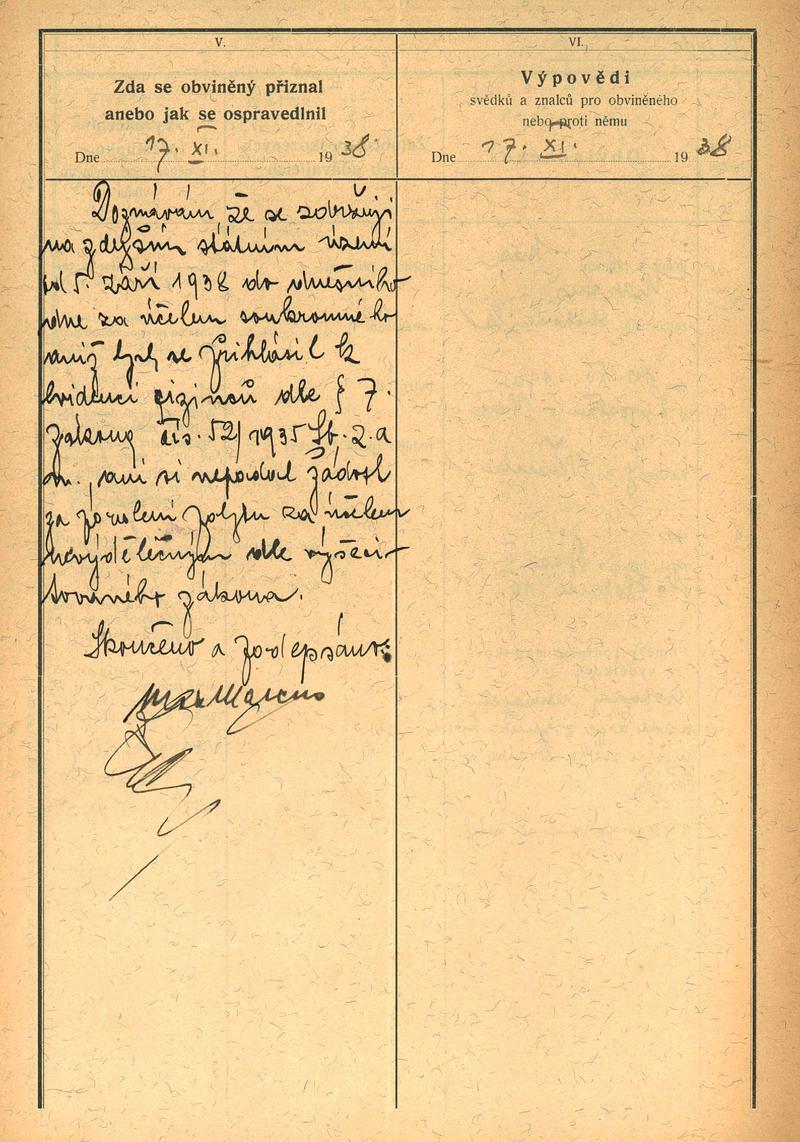 V.
Zda se obviněný přiznal
anebo jak se ospravedlnil
Dne 17. XI. 1938
Doznávám, že se zdržuji
na zdejším státním území
od 5. září 1938 do dnešního
dne za účelem soukromého
aniž bych se přihlásil k
evidenci cizinců dle § 7.
zákona čís. 52/1935 Sb. z. a
n., ani si nepodal žádost
za povolení pobytu za účelem
nevýdělečným dle výšeci-
tovaného zákona.
Skončeno a podepsáno:
Max Marcus
VI.
Výpovědi
svědků a znalců pro obviněného
nebo proti němu
Dne 17. XI. 1938